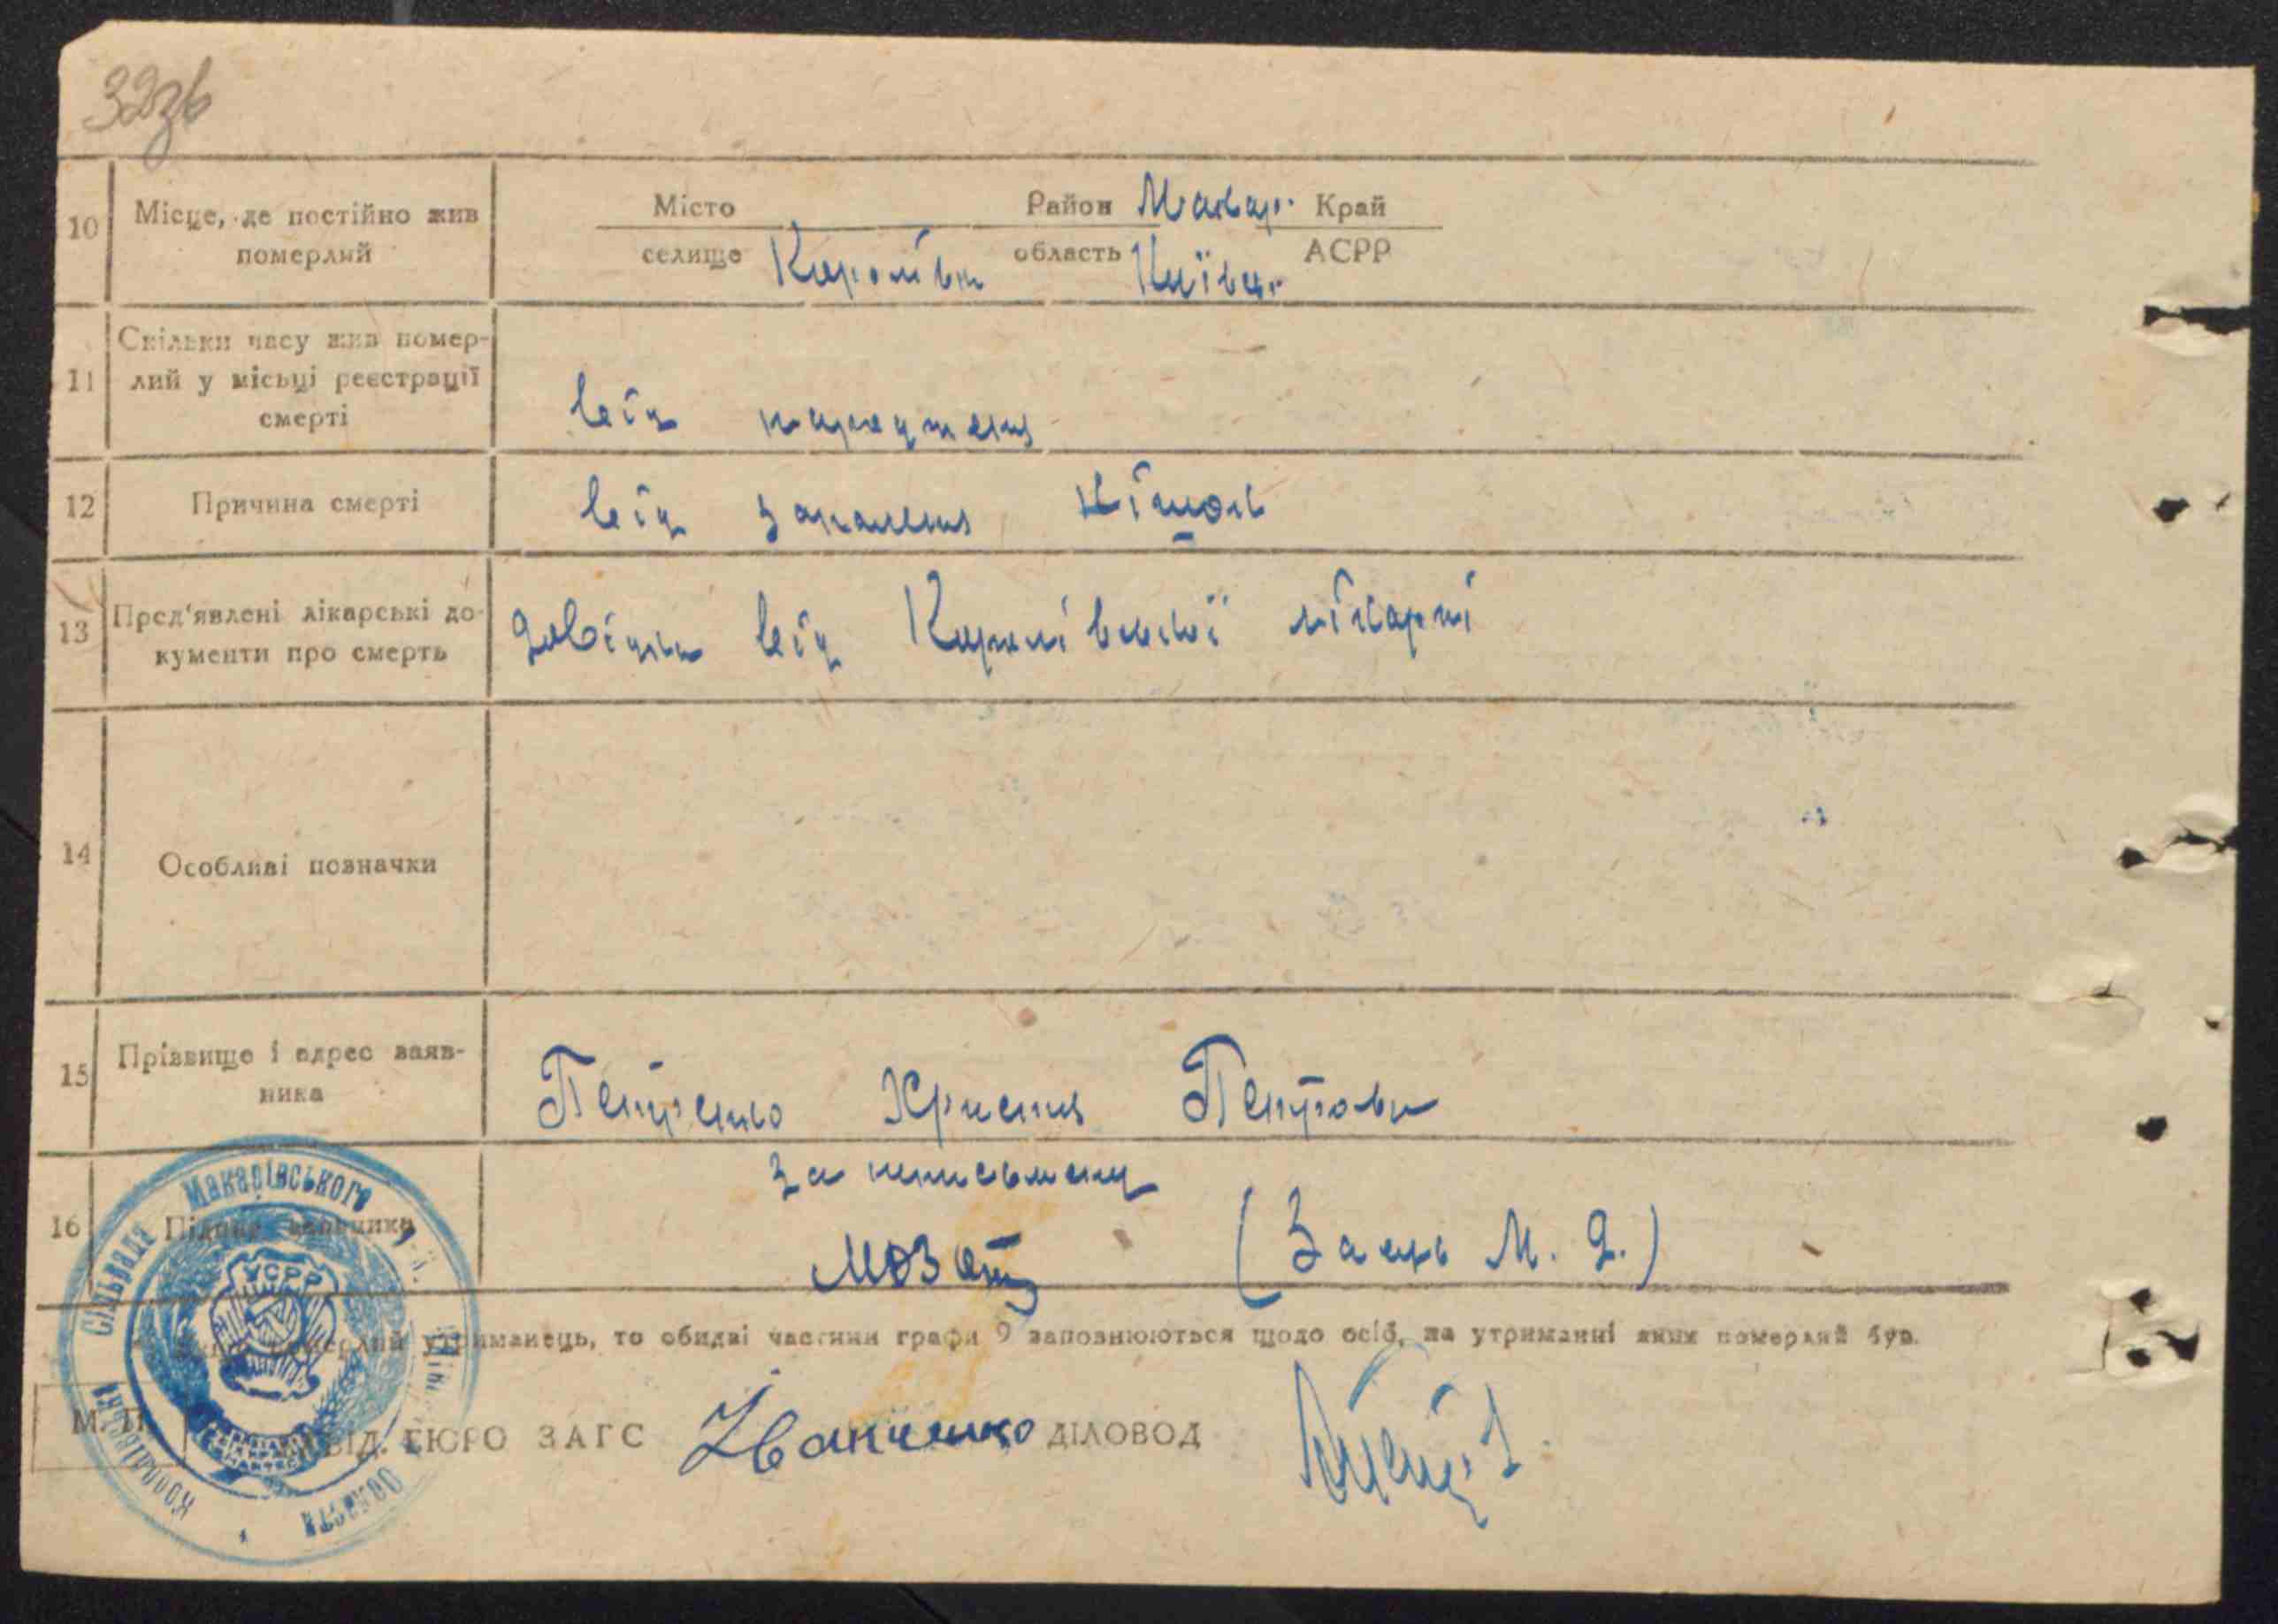 32зв
10 Місце, де постійно жив померлий
Місто Район Макар. Край
селище Королівка область Київськ. АСРР
11 Скільки часу жив помер-
лий у місьці реєстрації
смерті
від народженя
12 Причина смерті від запаленя кішок
13 Пред'явлені лікарські до-
кументи про смерть
довідка від Королівської лікарні
14 Особливі позначки
15 Прізвище і адрес заяв-
ника
Петренко Христя Петровн
за неписьмену
16 Підпис заявника (Заєць М. Д.)
померлий утриманець, то обидві частини графи 9 заповнюються щодо осіб, на утриманні яких померлий був.
М. П. ЗАВІД. БЮРО ЗАГС Іванченко ДІЛОВОД
Королівська сільрада Макарівського р-н. Київ області
УСРР